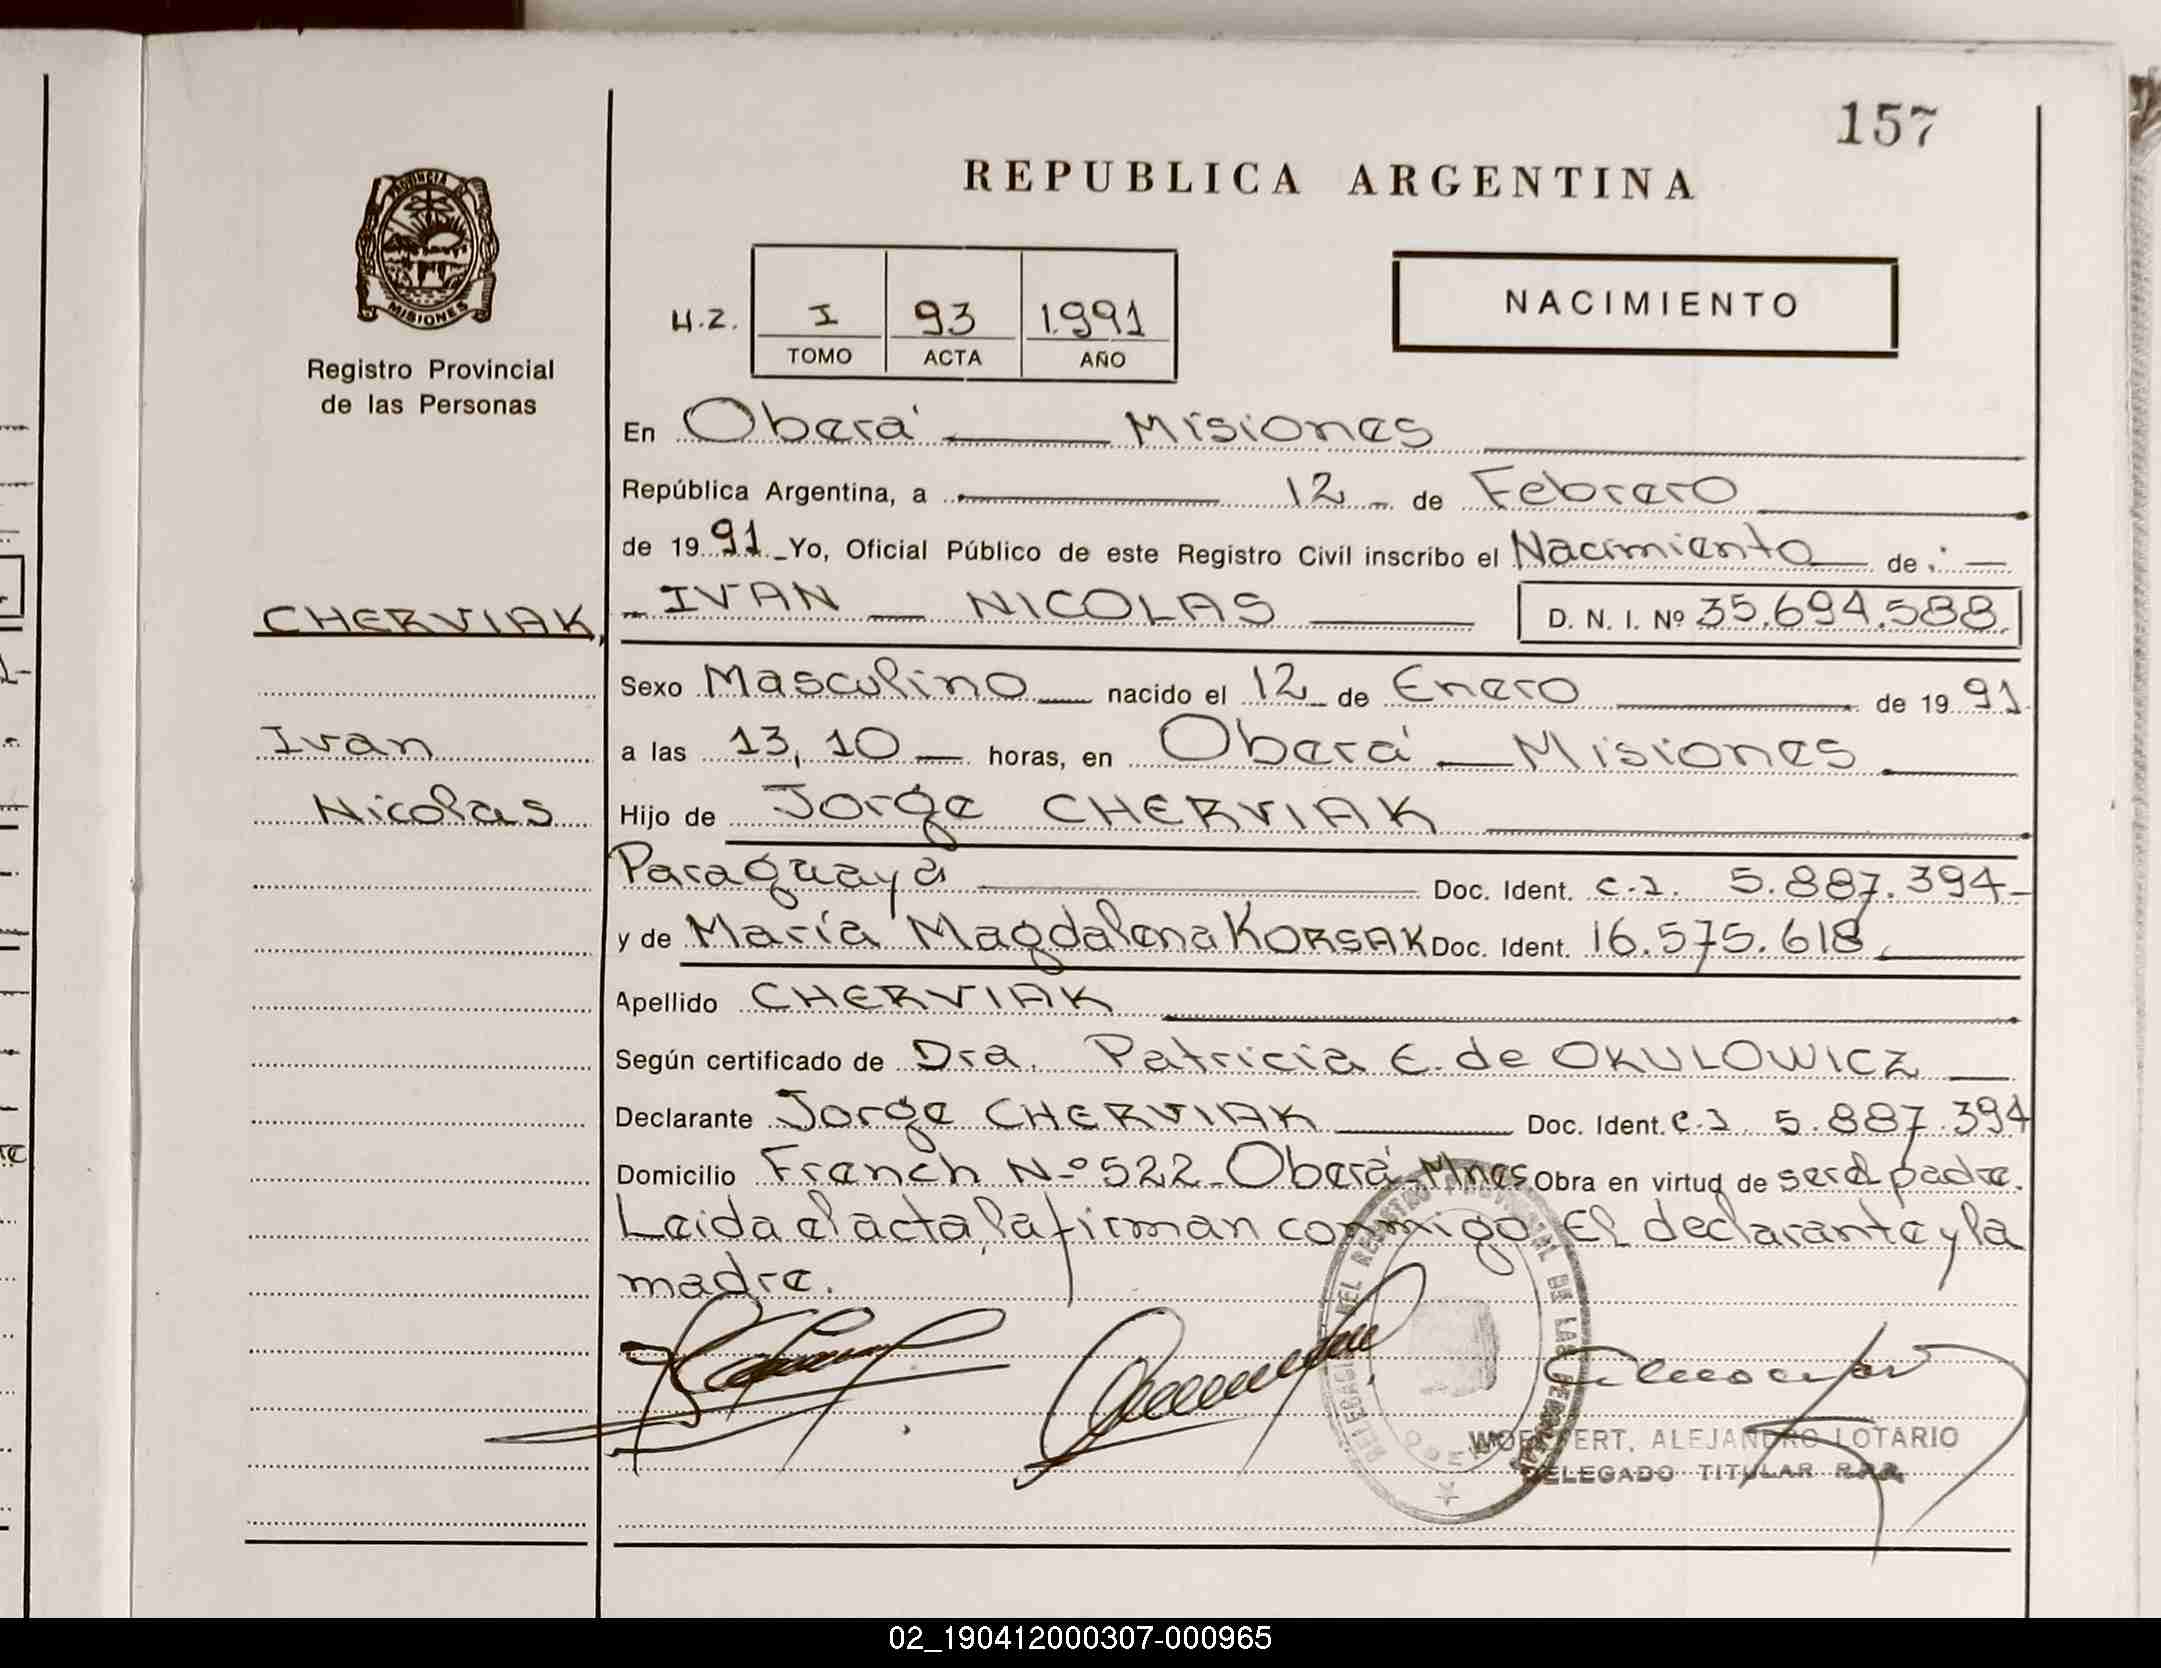 157
REPUBLICA ARGENTINA
PROVINCIA D
MISIONES
Registro Provincial
de las Personas
H.Z. I 93 1991
TOMO ACTA AÑO
NACIMIENTO
En Oberá Misiones
República Argentina, a 12 de Febrero
de 19 91 Yo, Oficial Público de este Registro Civil inscribo el Nacimiento de :
CHERVIAK, IVAN NICOLAS D. N. I. Nº 35.694.588
Sexo Masculino nacido el 12 de Enero de 19 91
Ivan a las 13,10 horas, en Oberá Misiones
Nicolas Hijo de Jorge CHERVIAK
Paraguaya Doc. Ident. C.I. 5.887.394
y de María Magdalena KORSAK Doc. Ident. 16.575.618
Apellido CHERVIAK
Según certificado de Dra. Patricia E. de OKULOWICZ
Declarante Jorge CHERVIAK Doc. Ident. C.I. 5.887.394
Domicilio French Nº 522 Oberá-Mnes Obra en virtud de ser el padre.
Leida el acta, la firman conmigo El declarante y la
madre.
DEL REGISTRO PROVINCIAL DE LAS
ALEJANDRO LOTARIO
DELEGADO TITULAR R.P.P.
02_190412000307-000965